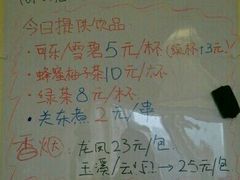 今日提供饮品:
· 可乐/雪碧5元/杯(续杯+3元)
· 蜂蜜柚子茶10元/杯
· 绿茶8元/杯
· 关东煮2元/串
香烟: 龙凤23元/包
玉溪/云烟→25元/包